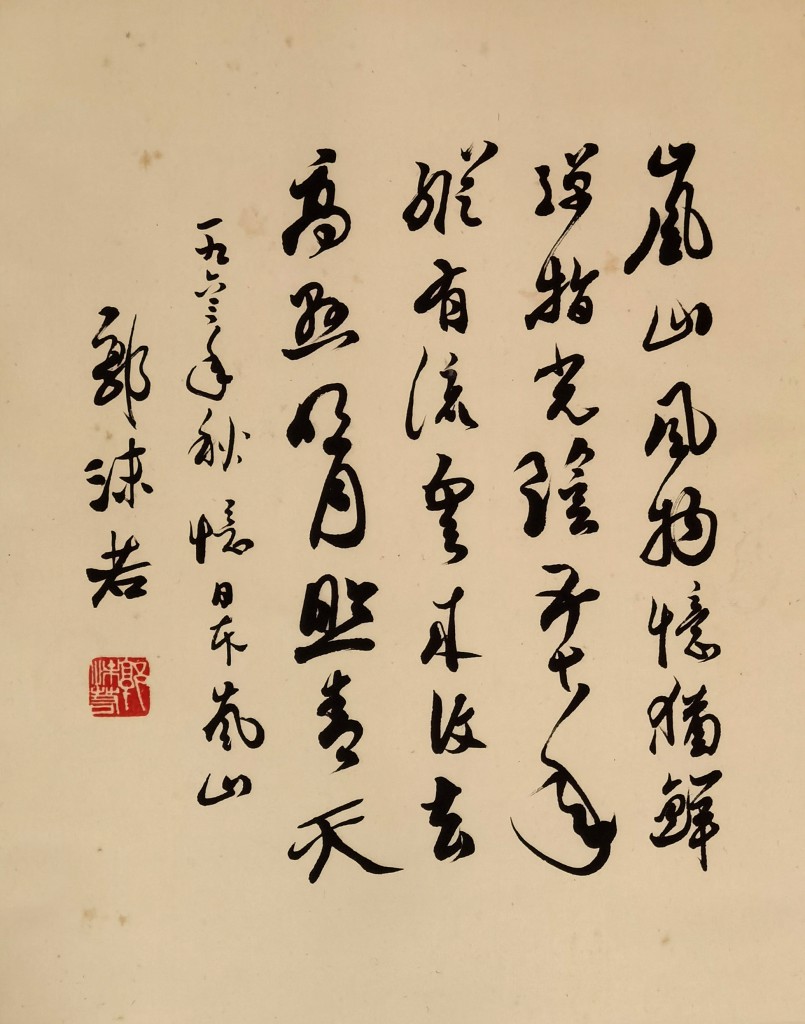 嵐山風物憶猶鮮
彈指光陰五十年
縱有流雲来復去
高懸明月照青天
一九六三年秋 憶日本嵐山
郭沫若
郭沫若